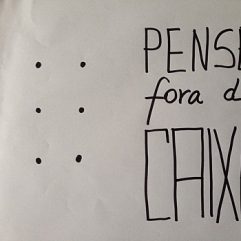 PENSE
fora d
CAIX